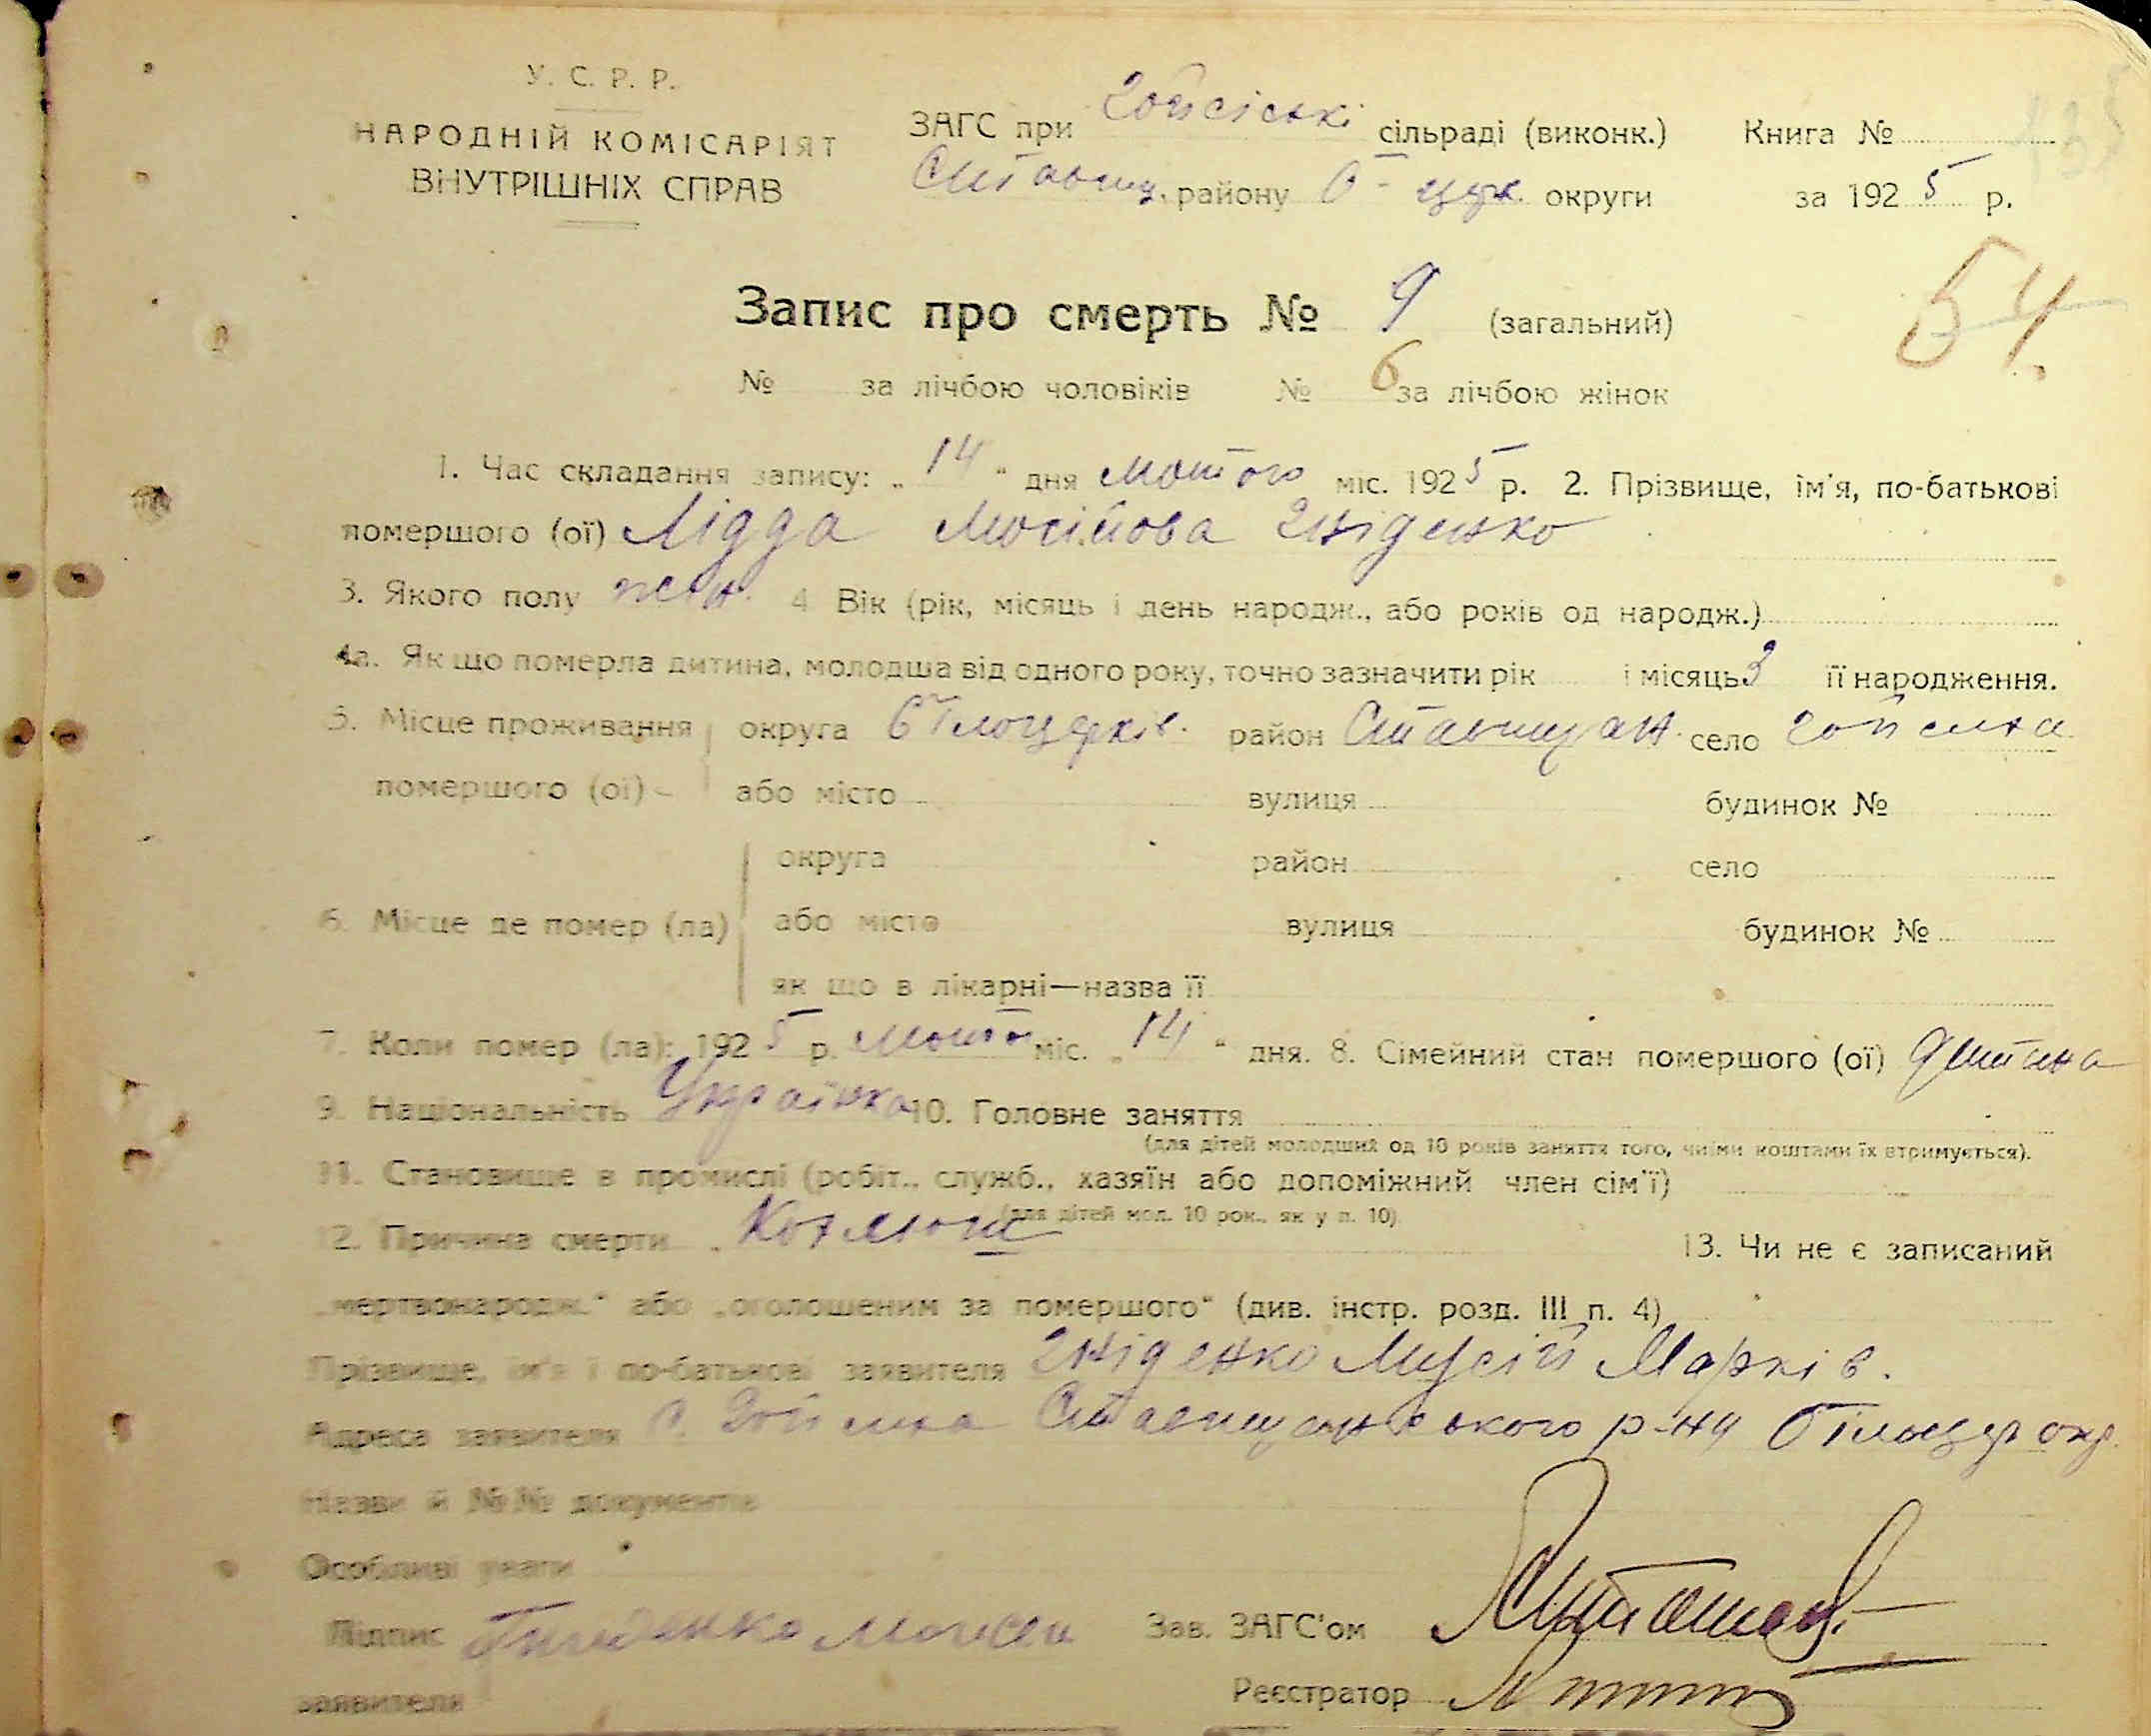 У. С. Р. Р.
НАРОДНІЙ КОМІСАРІЯТ
ВНУТРІШНІХ СПРАВ
ЗАГС при Гойсіські сільраді (виконк.) Книга №
Ставищ. району Б-церк. округи за 1925 р.
54
Запис про смерть № 9 (загальний)
№ за лічбою чоловіків № 6 за лічбою жінок
1. Час складання запису: „14“ дня Лютого міс. 1925 р. 2. Прізвище, ім'я, по-батькові
помершого (ої) Лідда Мосійова Гніденко
3. Якого полу жін. 4 Вік (рік, місяць і день народж., або років од народж.)
4а. Як що померла дитина, молодша від одного року, точно зазначити рік і місяць 3 її народження.
5. Місце проживання округа Білоцерків. район Ставищан. село Гойсиха
помершого (ої) або місто вулиця будинок №
округа район село
6. Місце де помер (ла) або місто вулиця будинок №
як що в лікарні—назва її
7. Коли помер (ла): 1925 р. Лютого міс. „14“ дня. 8. Сімейний стан помершого (ої) дитина
9. Національність Українка 10. Головне заняття
(для дітей молодших од 10 років заняття того, чиїми коштами їх втримується).
11. Становище в промислі (робіт., служб., хазяїн або допоміжний член сім'ї)
(для дітей мол. 10 рок., як у п. 10)
12. Причина смерти Коклюш 13. Чи не є записаний
„мертвонародж.“ або „оголошеним за помершого“ (див. інстр. розд. III п. 4)
Прізвище, ім'я і по-батькові заявителя Гніденко Мусій Марків.
Адреса заявителя с. Гойсиха Ставищанського р-ну Білоцер окр.
Назви й №№ документів
Особливі уваги
Підпис Гниденко Моисей Зав. ЗАГС'ом
заявителя Реєстратор